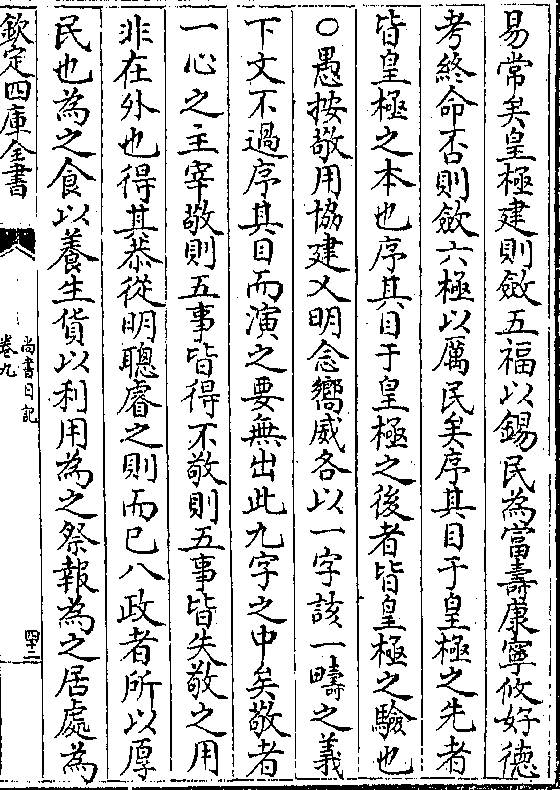 易常矣皇極建則斂五福以錫民為富壽康寧攸好德
考終命否則斂六極以厲民矣序其目于皇極之先者
皆皇極之本也序其目于皇極之後者皆皇極之驗也
○愚按敬用協建乂明念嚮威各以一字該一疇之義
下文不過序其目而演之要無出此九字之中矣敬者
一心之主宰敬則五事皆得不敬則五事皆失敬之用
非在外也得其恭從明聰睿之則而已八政者所以厚
民也為之食以養生貨以利用為之祭報為之居處為
欽定四庫全書
尚書日記
卷九
四十二